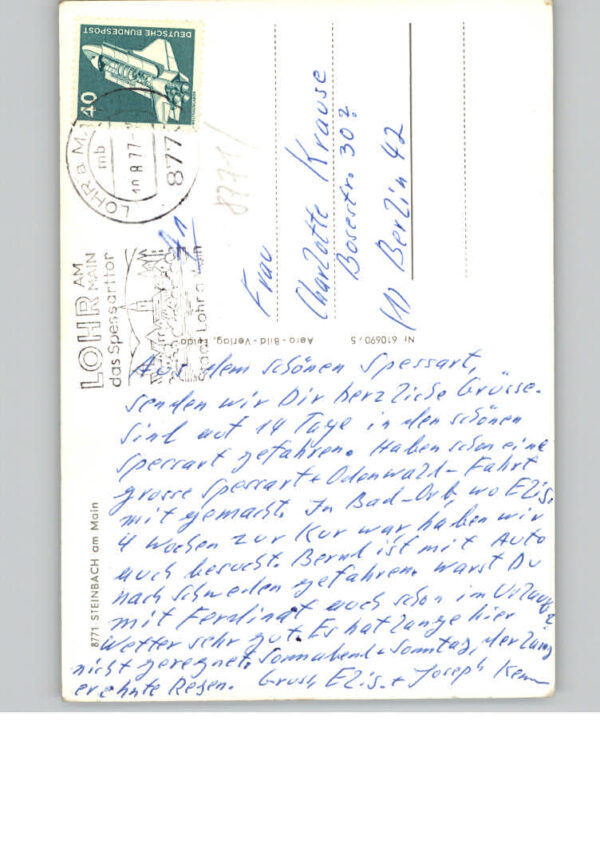 DEUTSCHE BUNDESPOST
40
LOHR a. M. 1
mb
10.8.77
877
LOHR AM MAIN
das Spessarttor
8771
An
Frau
Charlotte Krause
Bosestr. 30?
(1) Berlin 42
Nr 610690/5
Aero-Bild-Verlag,
8771 STEINBACH am Main
Aus dem schönen Spessart,
senden wir Dir herzliche Grüsse.
Sind auf 14 Tage in den schönen
Spessart gefahren. Haben schon eine
grosse Spessart + Odenwald-Fahrt
mit gemacht. In Bad-Orb, wo Elis.
4 Wochen zur Kur war, haben wir
auch besucht. Bernd ist mit Auto
nach Schweden gefahren. Warst Du
mit Ferdinat auch schon im Urlaub?
Wetter sehr gut. Es hat lange hier
nicht geregnet. Sonnabend + Sonntag, der lang
ersehnte Regen. Gruss, Elis. + Joseph